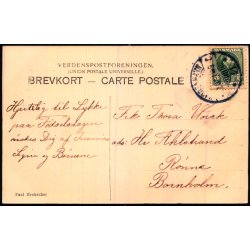 VERDENSPOSTFORENINGEN.
(UNION POSTALE UNIVERSELLE)
BREVKORT – CARTE POSTALE
Hjertelig til Lykke
paa Fødselsdagen
ønskes Dig af
Signe og Børnene
Frk Thora
ads: Hr Ahlstrand
Rønne
Bornholm.
Paul Heckscher